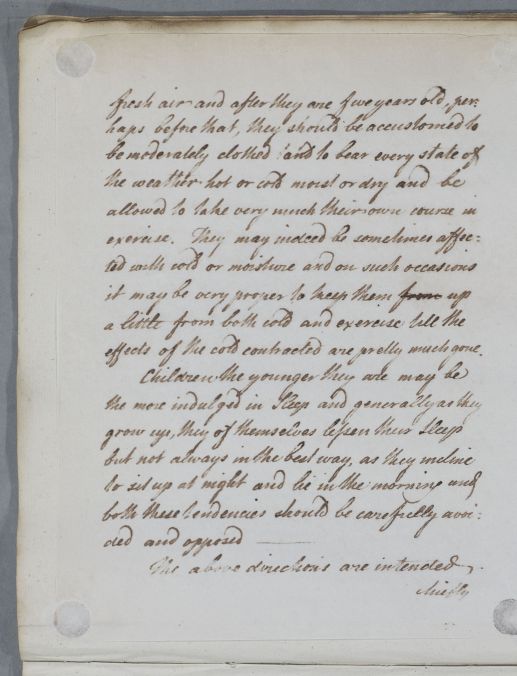 fresh air and after they are five years old, per:
haps before that, they should be accustomed to
be moderately clothed and to bear every state of
the weather hot or cold moist or dry and be
allowed to take very much their own course in
exercise. They may indeed be sometimes affec:
ted with cold or moisture and on such occasions
it may be very proper to keep them from up
a little from both cold and exercise till the
effects of the cold contracted are pretty much gone.
Children the younger they are may be
the more indulged in Sleep and generally as they
grow up, they of themselves lessen their Sleep
but not always in the best way, as they incline
to sit up at night and lie in the morning and
both these tendencies should be carefully avoi:
ded and opposed
The above directions are intended
chiefly